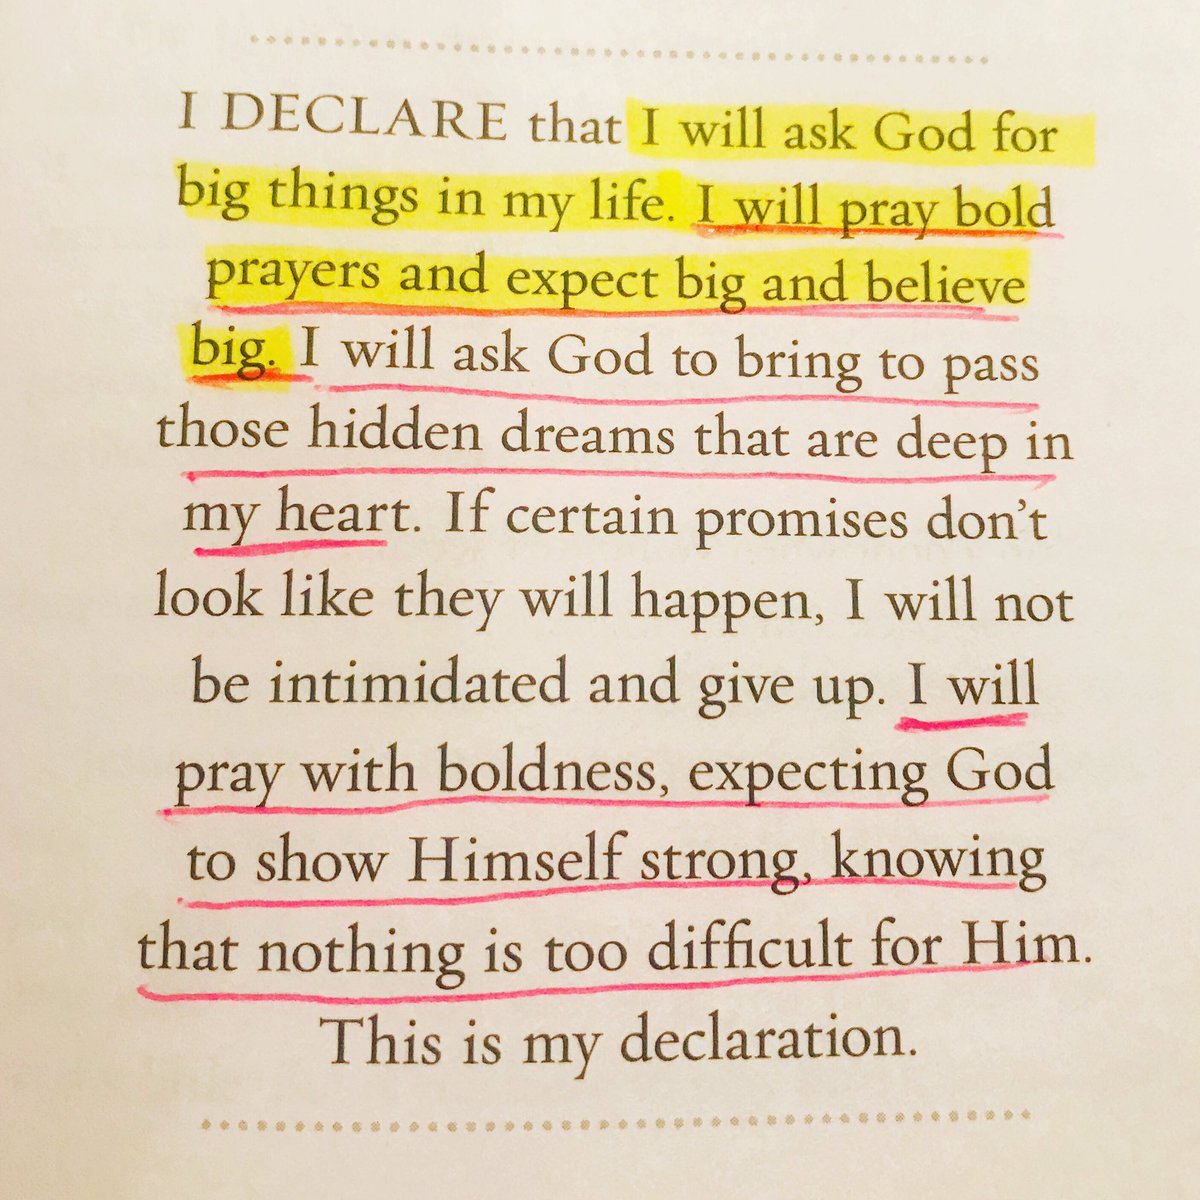 I DECLARE that I will ask God for
big things in my life. I will pray bold
prayers and expect big and believe
big. I will ask God to bring to pass
those hidden dreams that are deep in
my heart. If certain promises don’t
look like they will happen, I will not
be intimidated and give up. I will
pray with boldness, expecting God
to show Himself strong, knowing
that nothing is too difficult for Him.
This is my declaration.